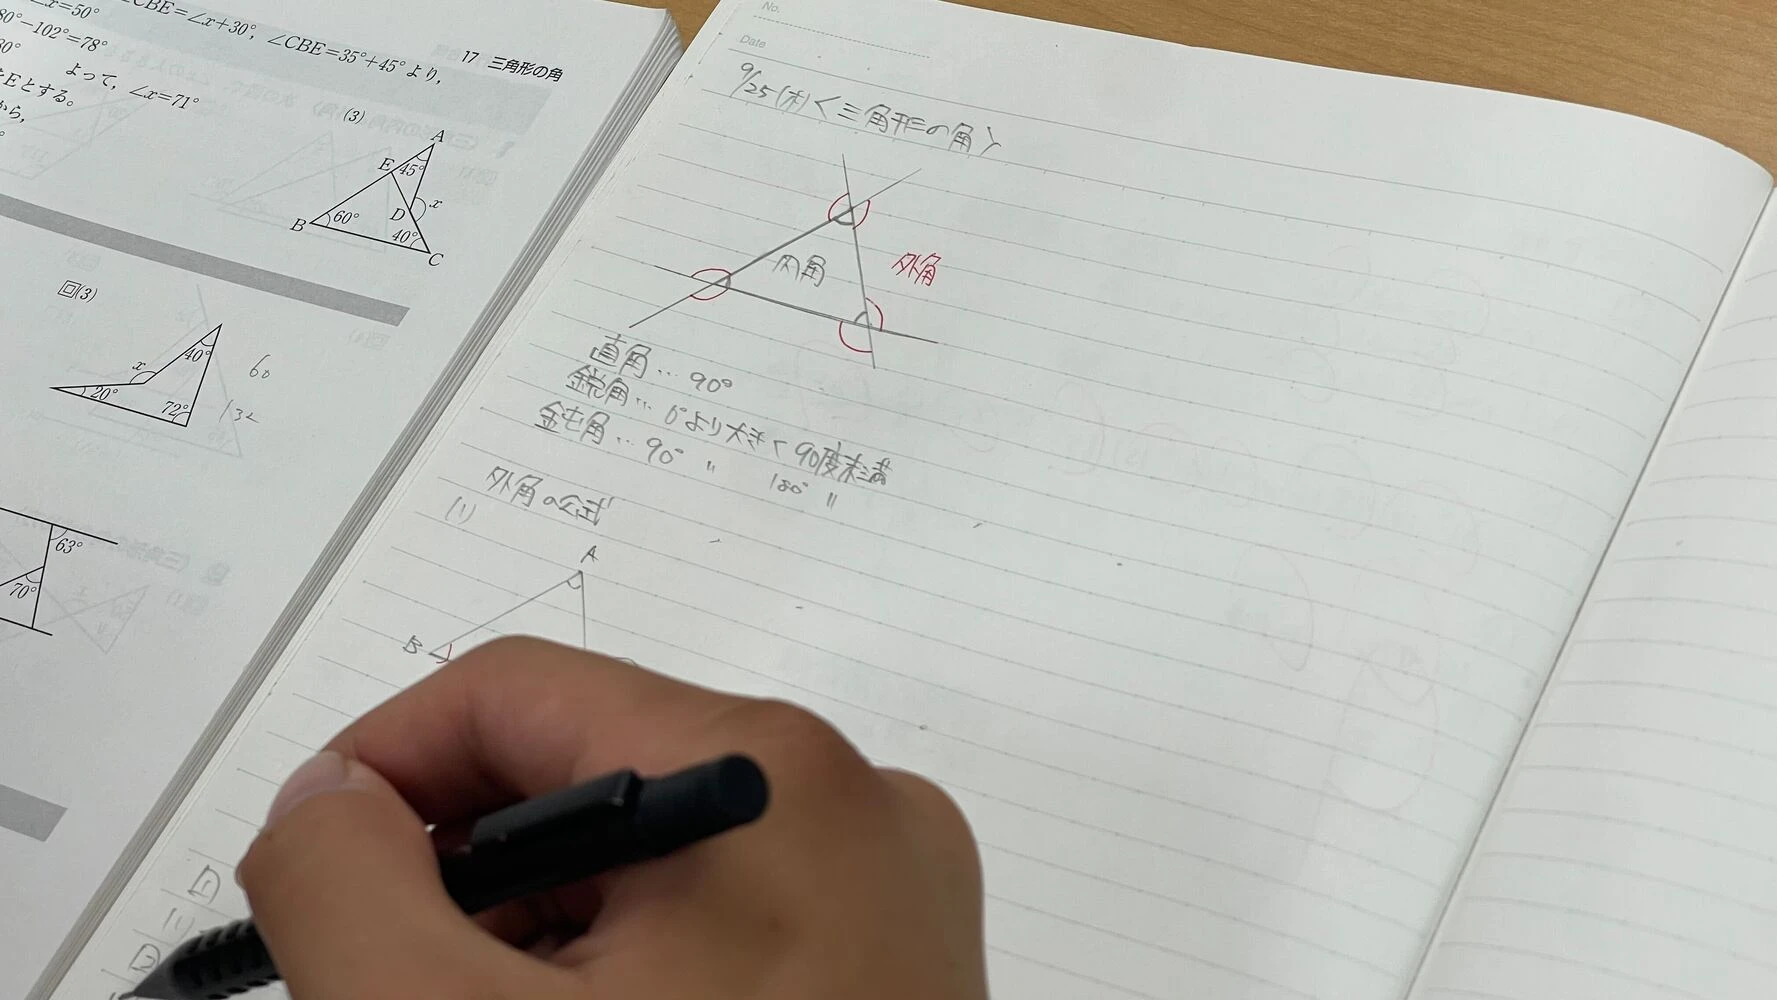 ∠x=50°
∠CBE=∠x+30°, ∠CBE=35°+45°より,
80°−102°=78°
よって, ∠x=71°
Eとする。
から,
17 三角形の角
(3)
A
E 45°
D x
B 60°
40° C
回(3)
x 40°
20° 72°
60
132
63°
70°
No.
Date
9/25(木)<三角形の角>
内角
外角
直角…90°
鋭角…0°より大きく90度未満
鈍角…90° 〃 180° 〃
外角の公式
(1)
A
B
1
(1)
2